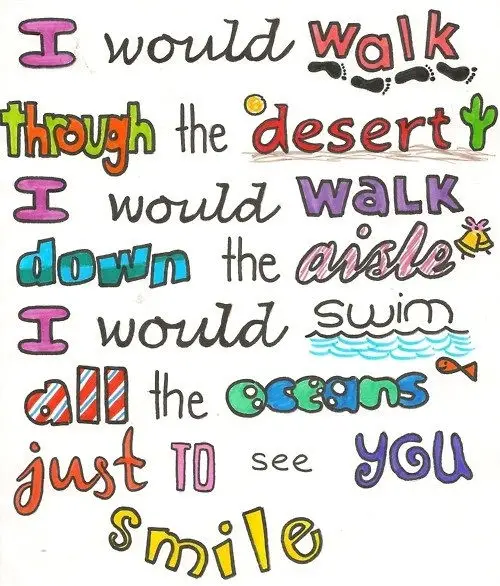 I would walk
through the desert
I would WALK
down the aisle
I would swim
all the oceans
just TO see YOU
smile